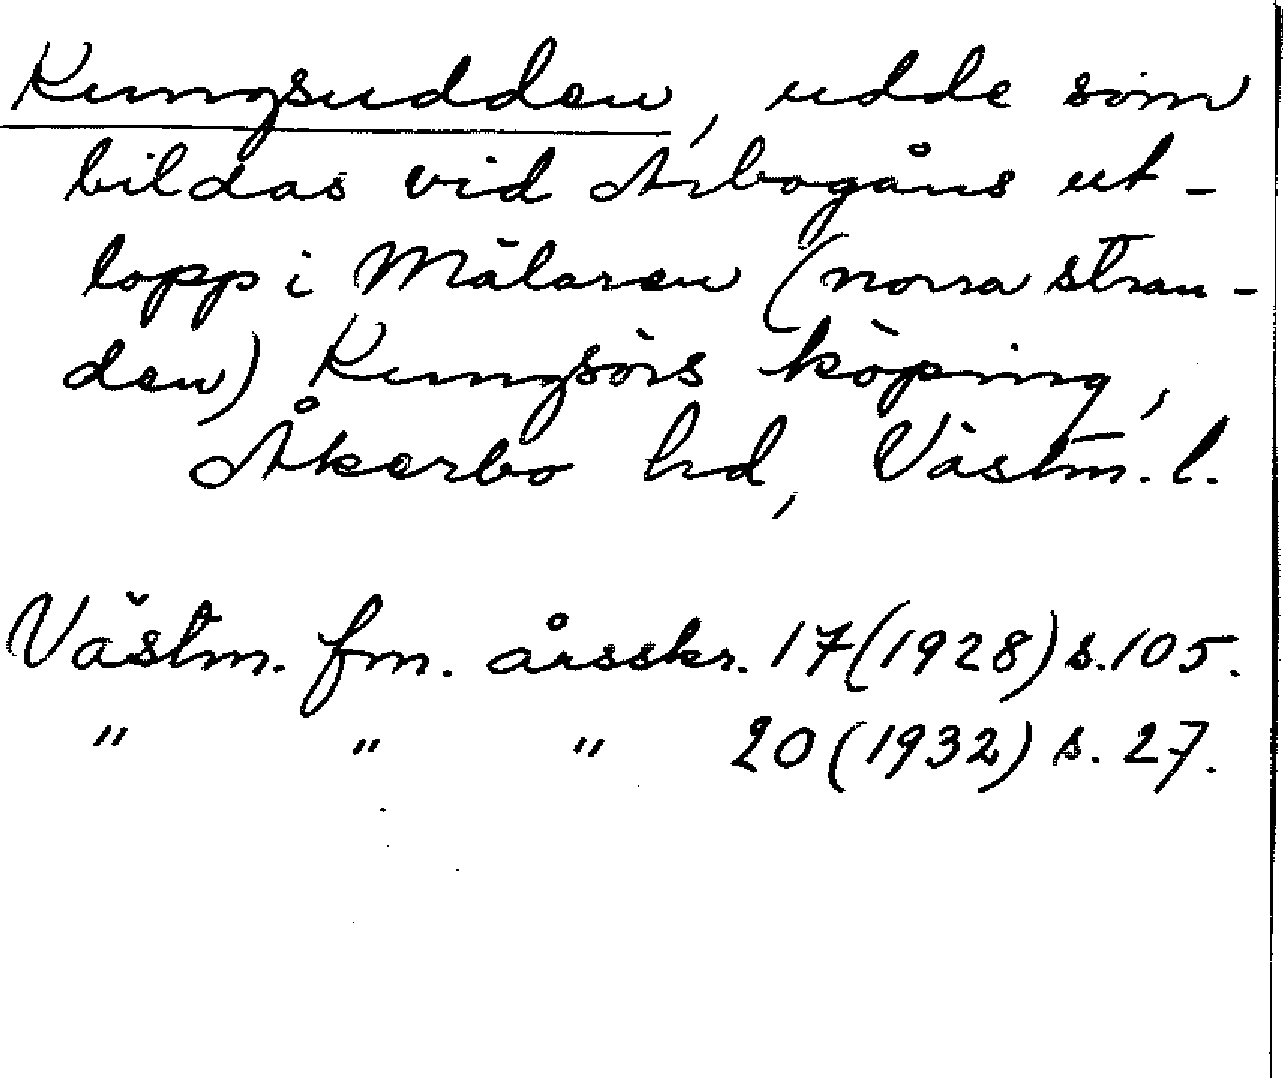 Kungsudden, udde som
bildas vid Arbogåns ut-
lopp i Mälaren (norra stran-
den) Kungsörs köping,
Åkerbo hd, Västm. l.
Västm. fm. årsskr. 17 (1928) s. 105.
" " " 20 (1932) s. 27.